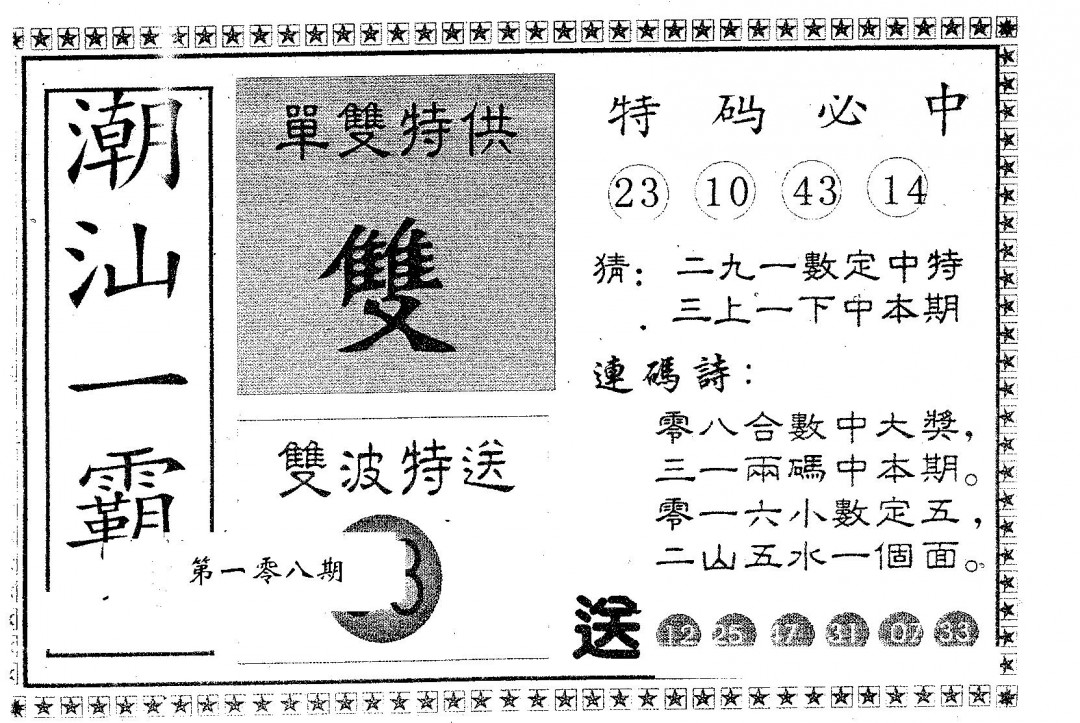 潮汕一霸
單雙特供
雙
雙波特送
第一零八期
3
特码必中
23 10 43 14
猜：二九一數定中特
三上一下中本期
連碼詩：
零八合數中大獎，
三一兩碼中本期。
零一六小數定五，
二山五水一個面。
送 12 25 47 31 07 33